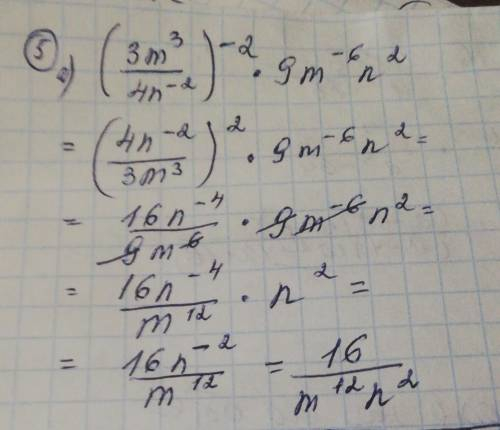 5 a) (3m³/4n⁻²)⁻² · 9m⁻⁶n²
= (4n⁻²/3m³)² · 9m⁻⁶n² =
= 16n⁻⁴/9m⁶ · 9m⁻⁶n² =
= 16n⁻⁴/m¹² · n² =
= 16n⁻²/m¹² = 16/m¹²n²